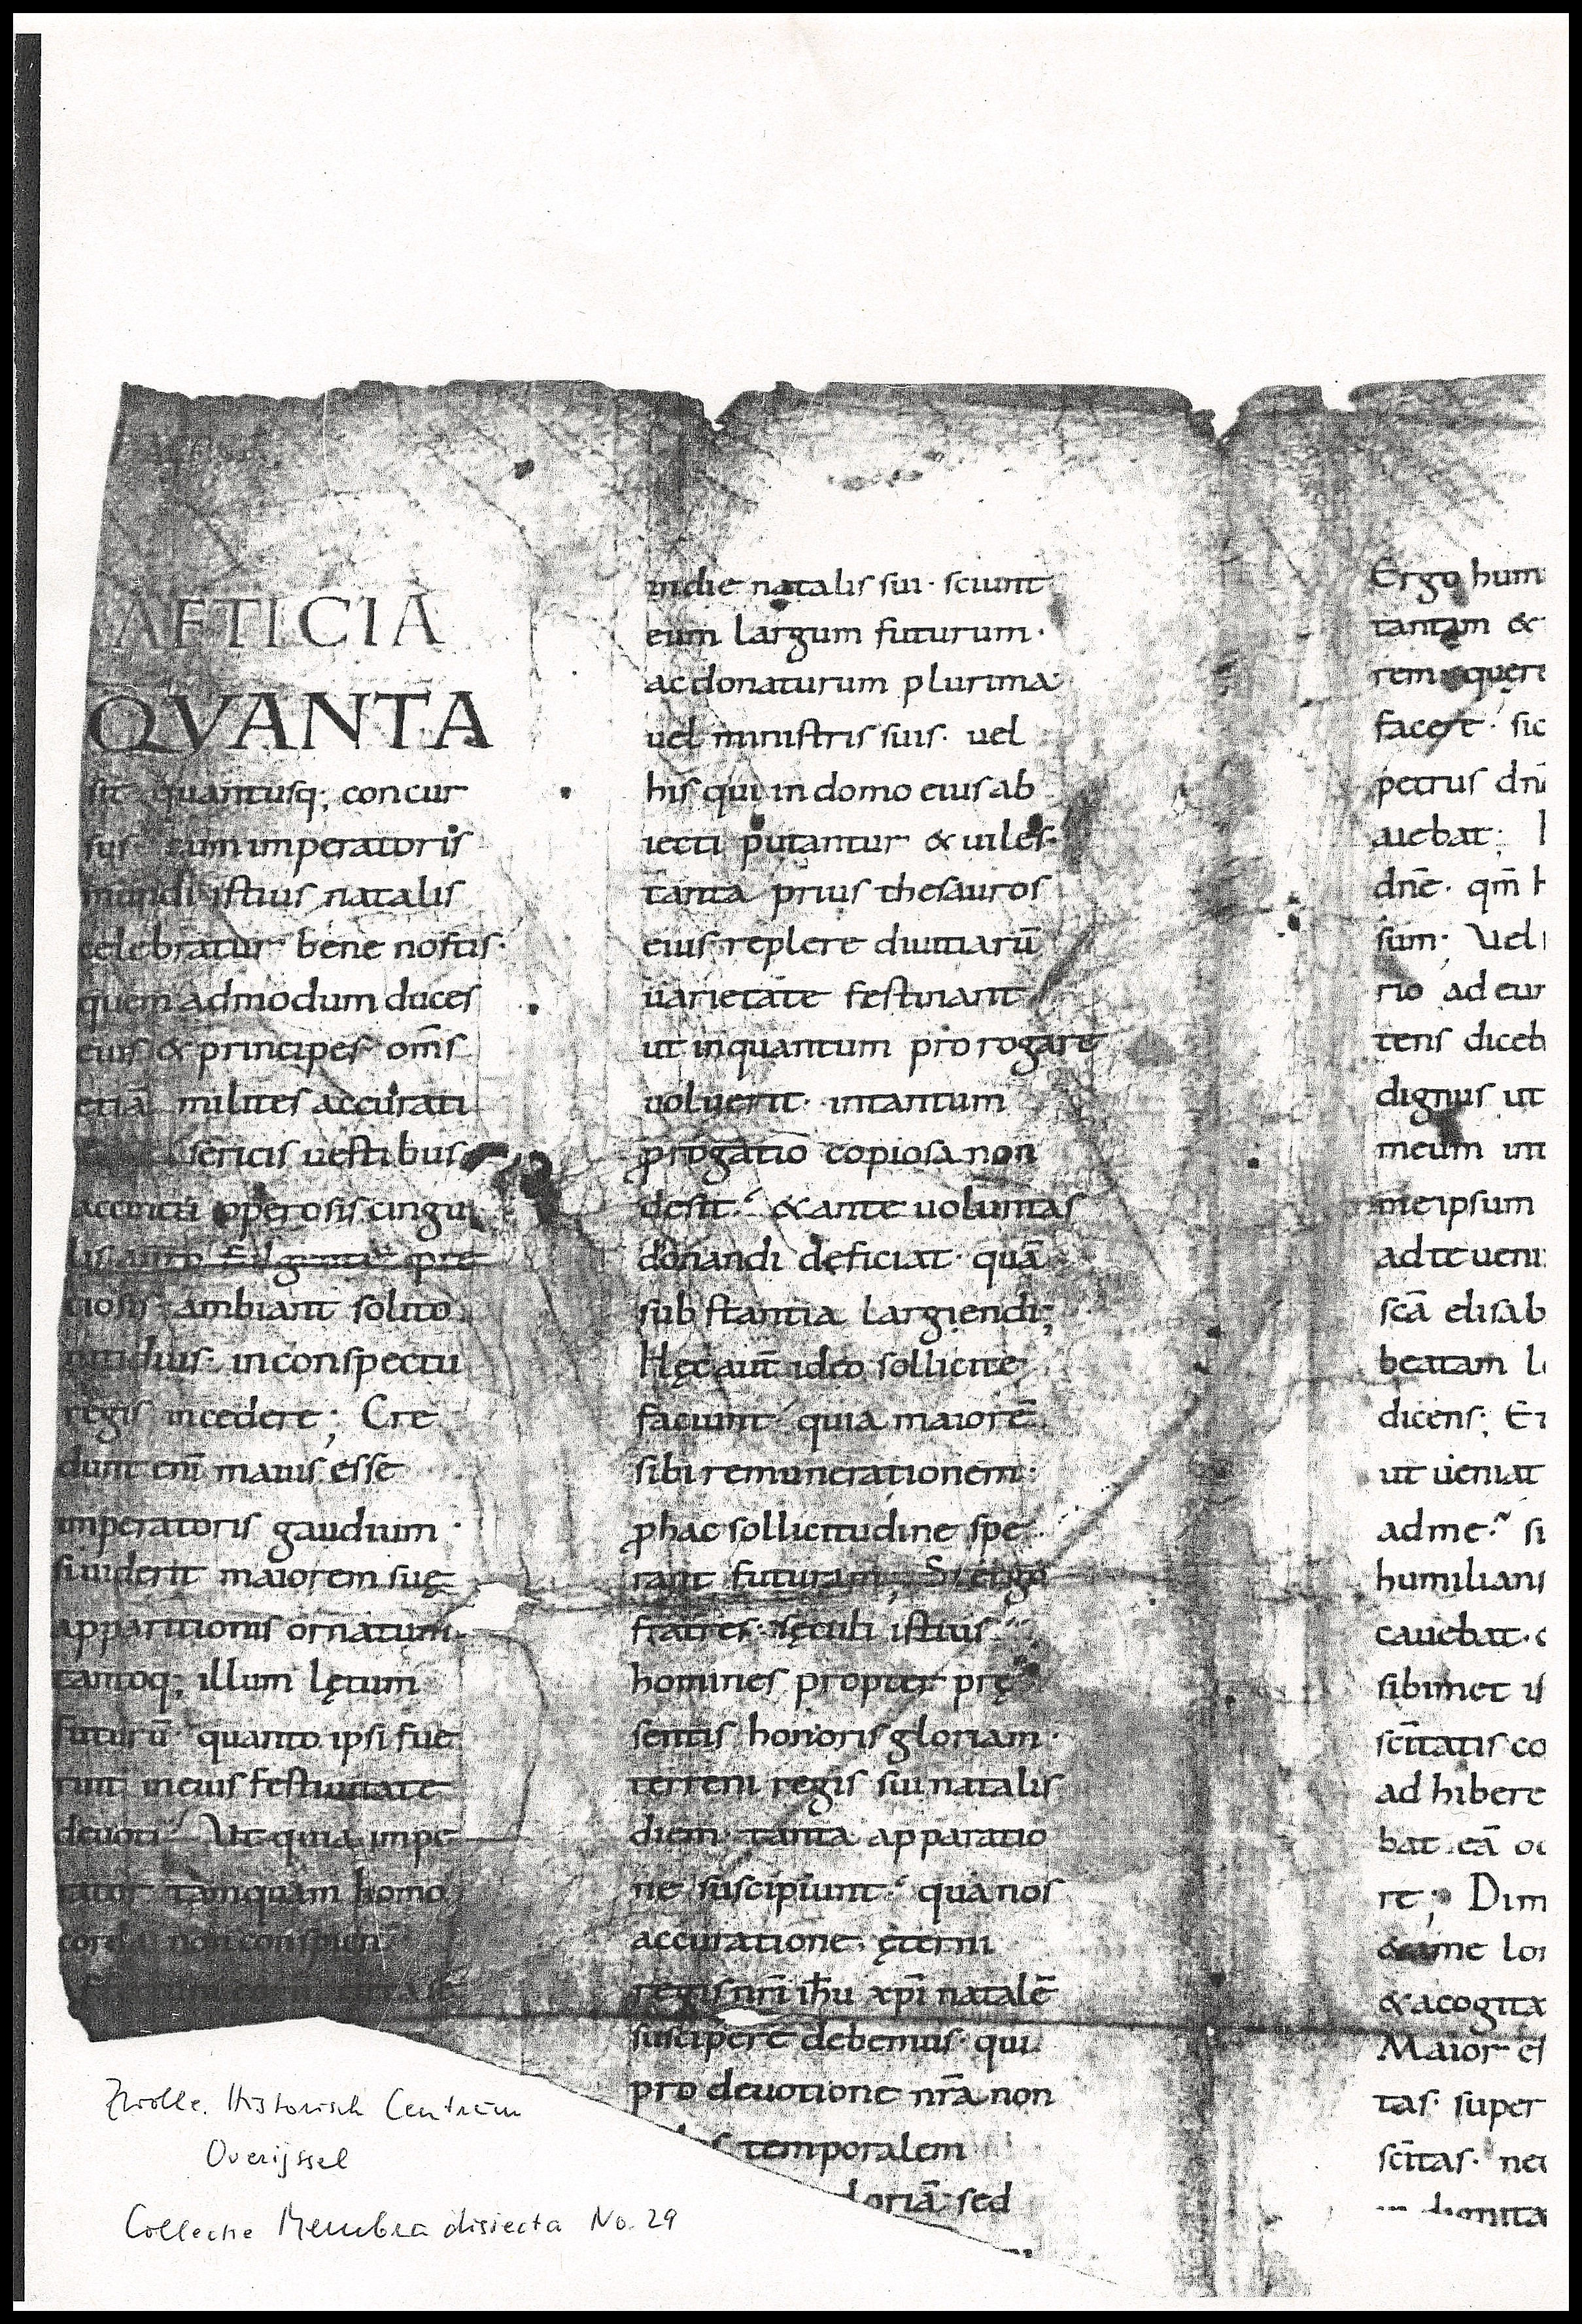 AFTICIA
QVANTA
sit quantusq; concur
sus cum imperatoris
mundi istius natalis
celebratur bene nostis·
quem admodum duces
eius & principes om̅s
etiā milites accurati
sericis uestibus
accincti operosis cingu
lis auro fulgente pre
tiosis ambiant solito
nitidius· inconspectu
regis incedere; Cre
dunt eni̅ maius esse
imperatoris gaudium·
si uiderit maiorem suę
apparitionis ornatum·
tantoq; illum lętum
futurū· quanto ipsi fue
rint in eius festiuitate
deuoti· Ut quia impe
rator tamquam homo
corda non conspicit
indie natalis sui· sciunt
eum largum futurum·
ac donaturum plurima
uel ministris suis· uel
his qui in domo eius ab
iecti putantur & uiles·
tanta prius thesauros
eius replere diuitiarū
uarietate festinant
ut inquantum prorogare
uoluerit· intantum
prọgatio copiosa non
desit· & ante uoluntas
donandi deficiat· quā
substantia largiendi;
Hęc aut̅ ideo sollicite
faciunt· quia maiorē
sibi remunerationem·
ꝓ hac sollicitudine spe
rant futuram; Si ergo
fratres· sęculi istius
homines propter prę
sentis honoris gloriam·
terreni regis sui natalis
diem tanta apparatio
ne suscipiunt· qua nos
accuratione· ęterni
regis nr̅i ih̅u xp̅i natalē
suscipere debemus· qui
pro deuotione nr̅a non
temporalem
loriā· sed
Ergo hum
tantam &
rem quere
facere· sic
petrus dn̅
auebat; 
dn̅e· qm̅ h
sum· Uel
rio ad eu
tens diceb
dignus ut
meum int
me ipsum
ad te ueni
sc̅a elisab
beatam
dicens; Et
ut ueniat
ad me· si
humilians
cauebat·
sibimet
sc̅itatis co
adhibere
bat eā oc
re; Dim
& ame lon
& acogita
Maior e
tas· super
sc̅itas· nec
Zwolle. Historisch Centrum
Overijssel
Collectie Membra disiecta No. 29